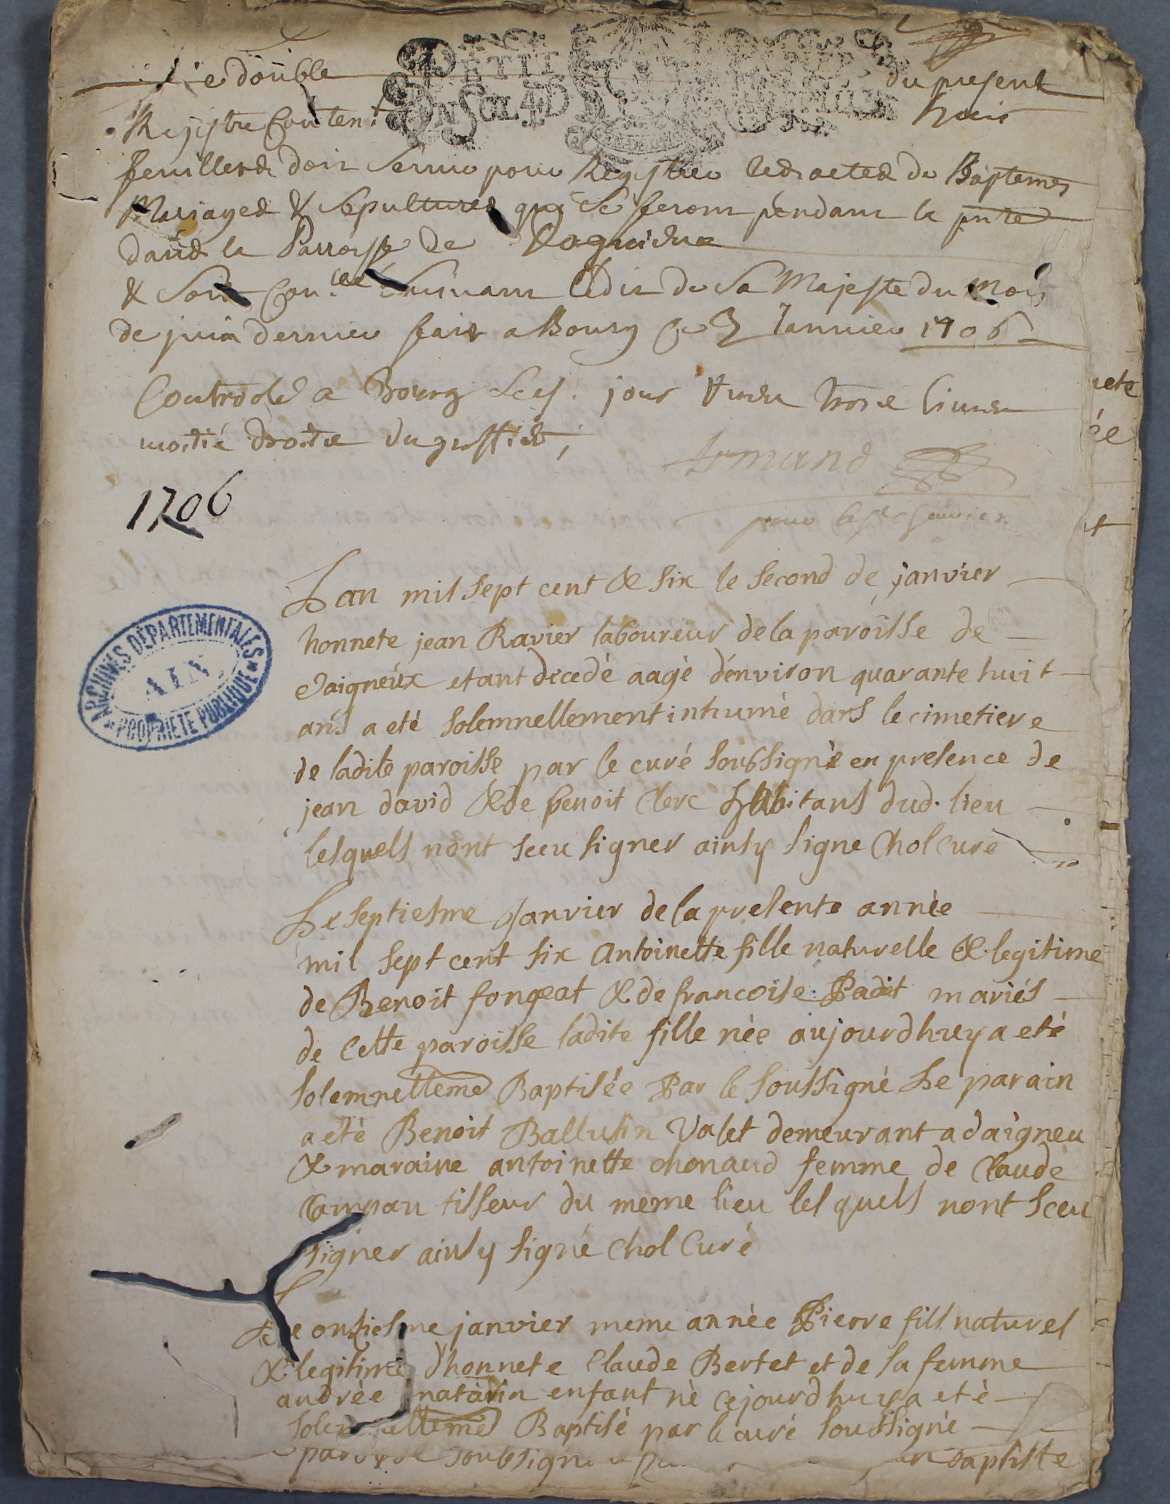 Le double du present
Registre Conten.t huit
feuilletes doit servir pour Registrer les actes de Baptemes
Mariages & sepultures qui se feront pendant la pnte
dans la Parroisse de Dagnieux
& son suivant ledit de Sa Majeste du Mois
de juin dernier fait a Bourg ce 3 Janvier 1706
Controlé a Bourg jour trois livres
moitié droits du greffier,
Armand
1706
Lan mil sept cent & six le second de janvier
honnete jean Ravier laboureur de la paroisse de
daigneux etant decedè aagè d'environ quarante huit
ans a eté solemnellement inhumé dans le cimetiere
de ladite paroisse par le curé soubsigné en presence de
jean david & de benoit Clerc habitans dud. lieu
lesquels n'ont sceu signer ainsy signe Chol Curé
Le septiesme Janvier de la presente année
mil sept cent six Antoinette fille naturelle & legitime
de Benoit fongeat & de francoise Padit mariés
de cette paroisse ladite fille née aujourdhuy a eté
solemnelleme Baptisée Par le soussigné Le parain
a eté Benoit Ballufin Valet demeurant a daigneu
& maraine antoinette chonaud femme de Claude
Campan tisseur du meme lieu lesquels nont sceu
signer ainsy signé Chol Curé
Le onsiesme janvier meme année Pierre fils naturel
& legitime d'honnete Claude Bertet et de sa femme
andrée natarin enfant né cejourdhuy a eté
solemnelleme Baptisé par le curé soussigné
soubsigné baptiste
ARCHIVES DÉPARTEMENTALES
AIN
PROPRIÉTÉ PUBLIQUE